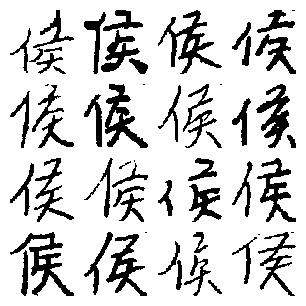 侯侯侯侯
侯侯侯侯
侯侯侯侯
侯侯侯侯